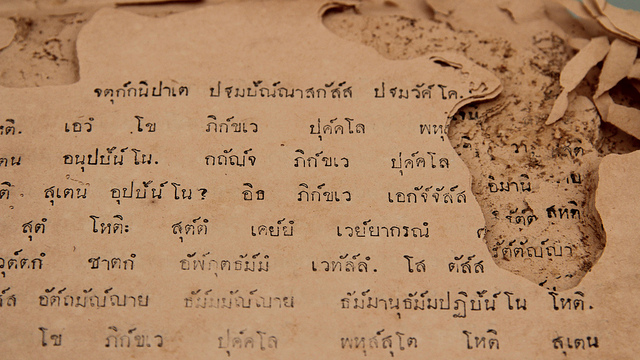 จตุกักนิปาเต ปฐมปัณณาสกัสส ปฐมวัคโค.
ติ. เอวํ โข ภิกขเว ปุคคโล พหุ
อนุปปันโน. กถัญจ ภิกขเว ปุคคโล วา
สุเตน อุปปันโน? อิธ ภิกขเว เอกัจจัสส อิมานิ
สุตํ โหติ: สุตตํ เคยยํ เวยยากรณํ
วุตตกํ ชาตกํ อัพภุตธัมมํ เวทัลลํ. โส ตัสส
อัตถมัญญาย ธัมมมัญญาย ธัมมานุธัมมปฏิปันโน โหติ.
โข ภิกขเว ปุคคโล พหุสสุโต โหติ สุเตน